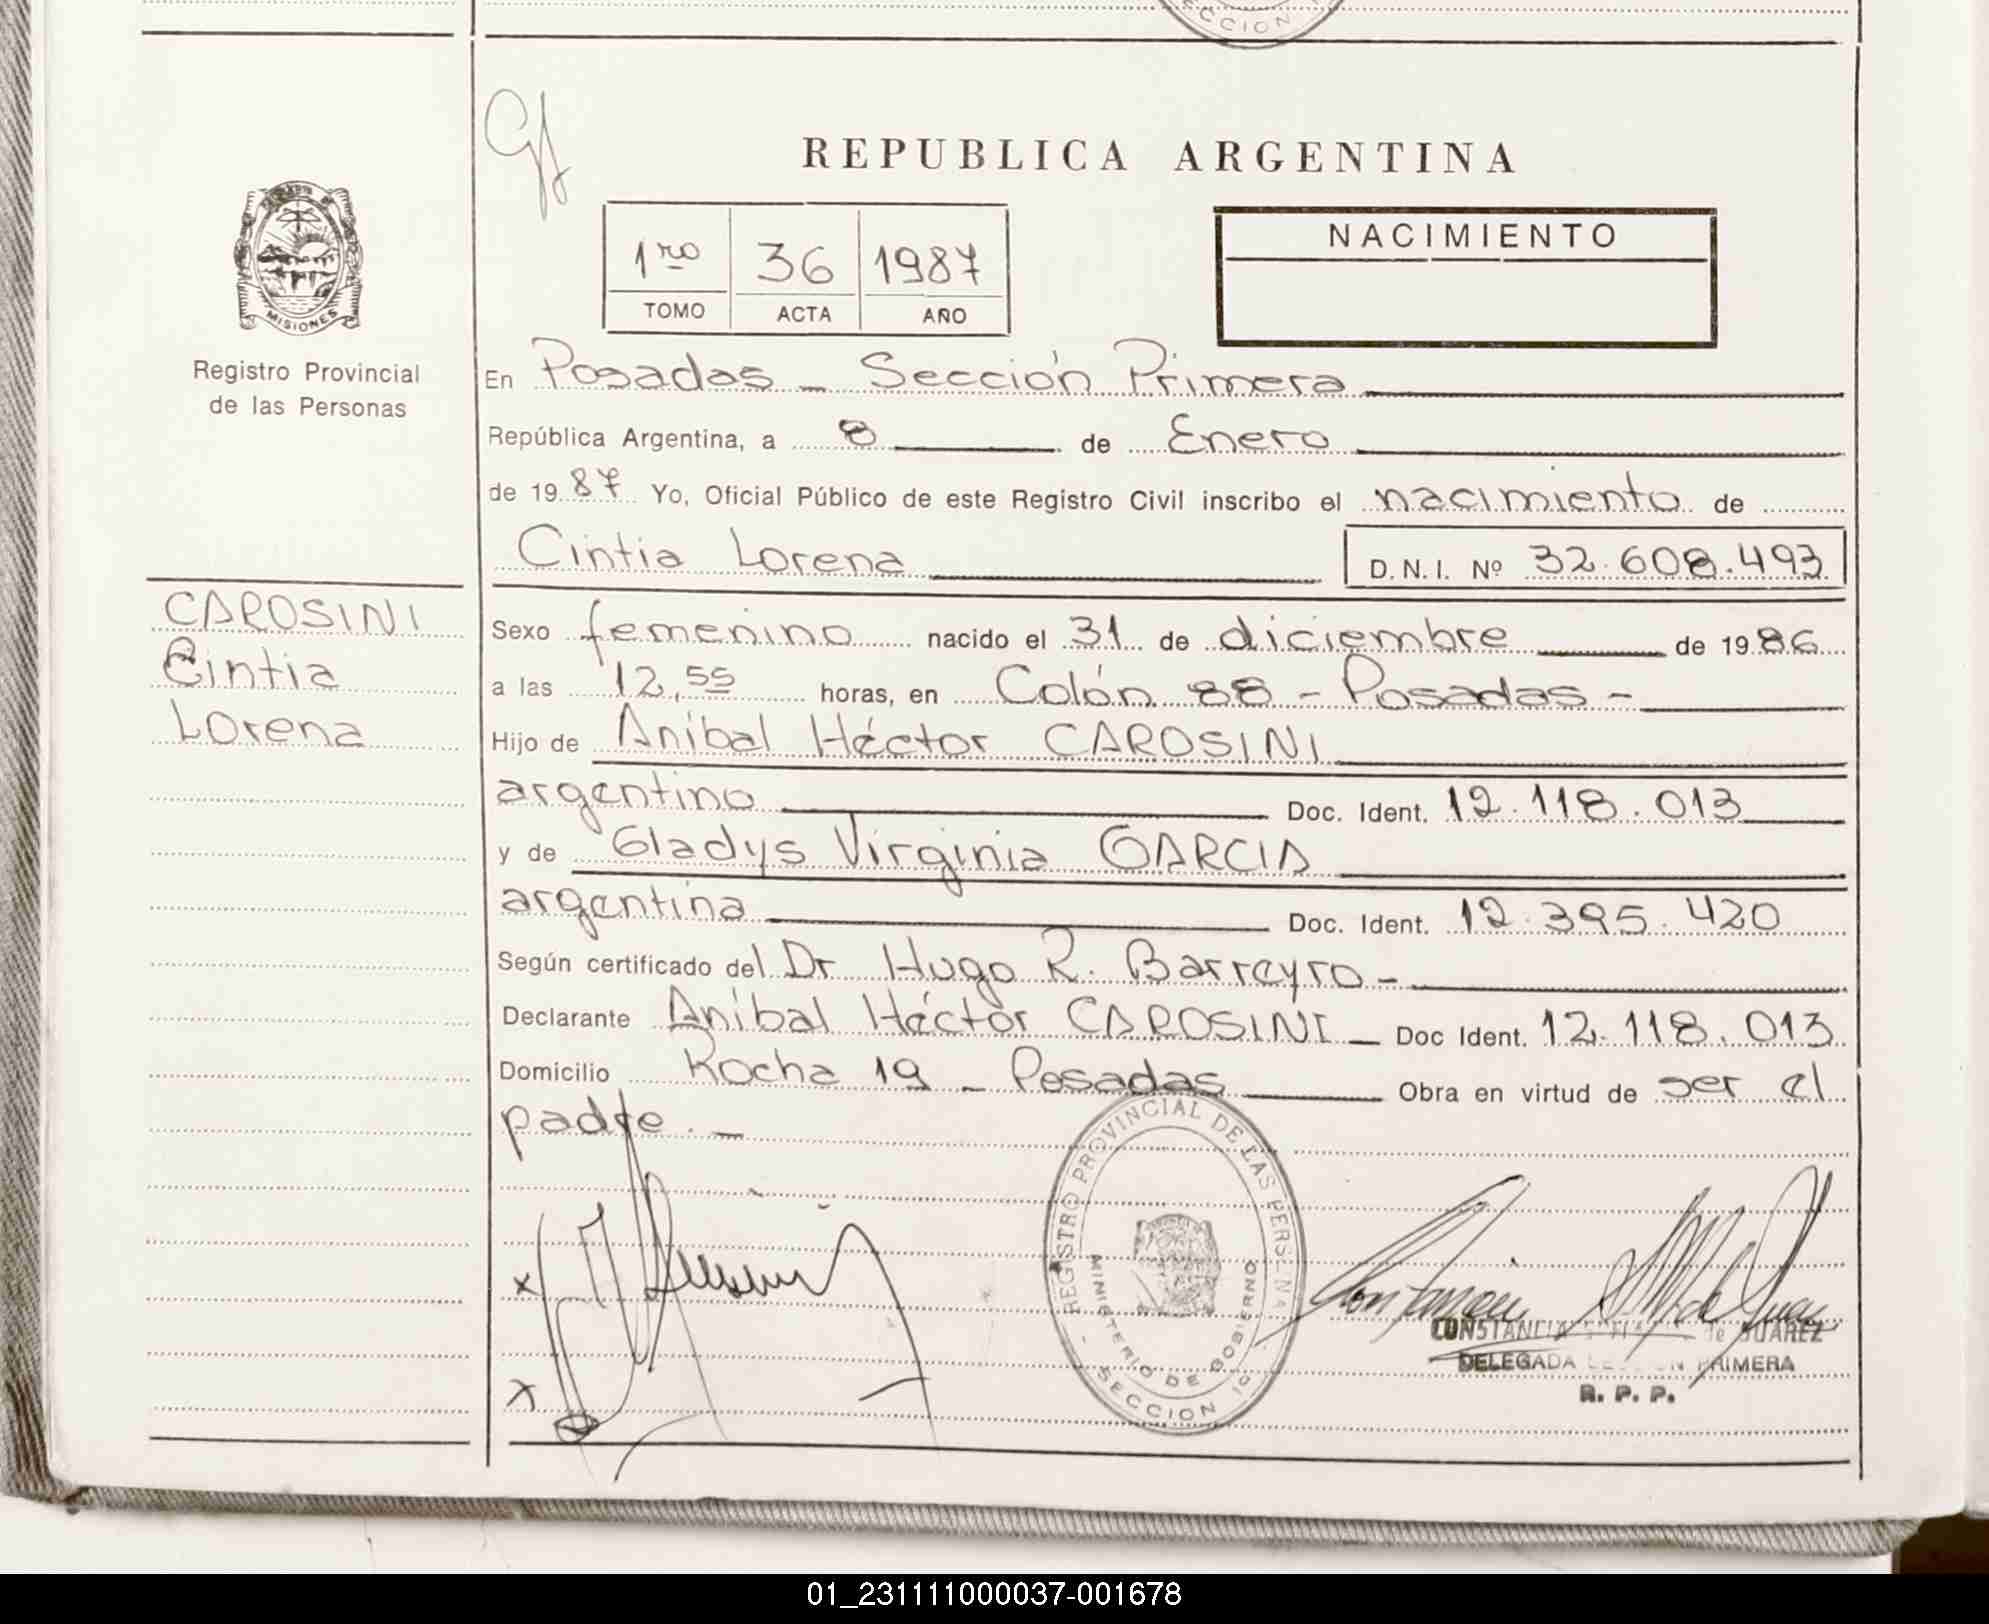 SECCION
REPUBLICA ARGENTINA
1ro 36 1987
TOMO ACTA AÑO
NACIMIENTO
MISIONES
Registro Provincial
de las Personas
En Posadas - Sección Primera
República Argentina, a 8 de Enero
de 1987 Yo, Oficial Público de este Registro Civil inscribo el nacimiento de
Cintia Lorena D.N.I. Nº 32.608.493
CAROSINI
Cintia
Lorena
Sexo femenino nacido el 31 de diciembre de 1986
a las 12,55 horas, en Colón 88 - Posadas -
Hijo de Aníbal Héctor CAROSINI
argentino Doc. Ident. 12.118.013
y de Gladys Virginia GARCIA
argentina Doc. Ident. 12.395.420
Según certificado del Dr Hugo R. Barreyro -
Declarante Aníbal Héctor CAROSINI - Doc Ident. 12.118.013
Domicilio Rocha 19 - Posadas Obra en virtud de ser el
padre. -
REGISTRO PROVINCIAL DE LAS PERSONAS
MINISTERIO DE GOBIERNO
- SECCION 1º -
CONSTANCIA de JUAREZ
DELEGADA SECCION PRIMERA
R. P. P.
01_231111000037-001678